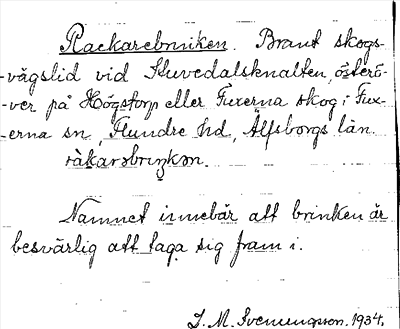 Rackarebrinken. Brant skogs-
-vägslid vid Stuvedalsknalten, österö-
-ver på Högstorp eller Fuxerna skog i Fux-
-erna sn, Flundre hd, Älfsborgs län.
rakarəbriŋkən.
Namnet innebär att brinken är
besvärlig att taga sig fram i.
J. M. Svenungsson. 1934.